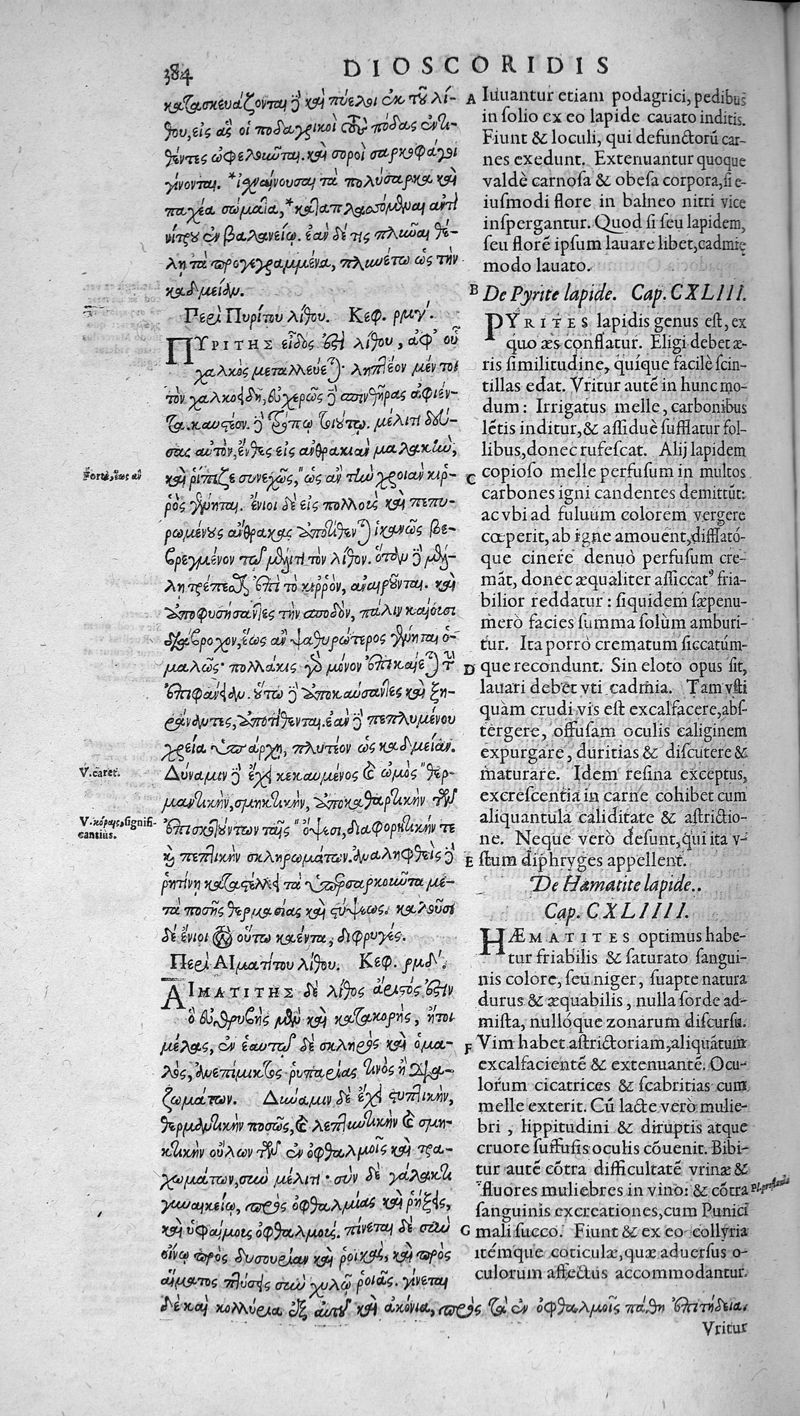 384
DIOSCORIDIS
κατασκευάζονται δὲ καὶ πύελοι ἐκ τοῦ λί-
θου, εἰς ἃς οἱ ποδαγρικοὶ τοὺς πόδας ἐντι-
θέντες ὠφελοῦνται. καὶ σοροὶ σαρκοφάγοι
γίνονται. *ἰσχναίνουσαι τὰ πολύσαρκα καὶ
παχέα σώματα,* καταπλασσόμεναι ἀντὶ
νίτρου ἐν βαλανείῳ. ἐὰν δέ τις πλῦναι θέ-
λῃ τὰ προγεγραμμένα, πλυνέτω ὡς τὴν
καδμείαν.
Περὶ Πυρίτου λίθου. Κεφ. ρμγʹ.
ΠΥΡΙΤΗΣ εἶδός ἐστι λίθου, ἀφ' οὗ
χαλκὸς μεταλλεύεται· ληπτέον μέντοι
τὸν χαλκοειδῆ, εὐχερῶς δὲ σπινθῆρας ἀφιέν-
τα. καυστέον δὲ τρόπῳ τούτῳ. μέλιτι δεύ-
σας αὐτὸν, ἔνθες εἰς ἀνθρακιὰν μαλακὴν,
Forte, ἕως ἂν
καὶ ῥίπιζε συνεχῶς, "ὡς ἂν τὴν χροιὰν κιρ-
ρὸς γένηται. ἔνιοι δὲ εἰς πολλοὺς καὶ πεπυ-
ρωμένους ἄνθρακας ἀποτίθενται ἱκανῶς βε-
βρεγμένον τῷ μέλιτι τὸν λίθον. ὅταν δὲ μέλ-
λῃ τρέπεσθαι ἐπὶ τὸ κιρρὸν, ἀναιροῦνται. καὶ
ἀποφυσήσαντες τὴν σποδὸν, πάλιν καίουσι
διάβροχον, ἕως ἂν ψαθυρώτερος γένηται ὁ-
μαλῶς· πολλάκις γὰρ μόνον ἐπικαίεται τὴν
ἐπιφάνειαν. οὕτω δὲ ἀποκαύσαντες καὶ ξη-
ράναντες, ἀποτίθενται. ἐὰν δὲ πεπλυμένου
χρεία ὑπάρχῃ, πλυτέον ὡς καδμείαν.
V. caret.
Δύναμιν δὲ ἔχει κεκαυμένος καὶ ὠμὸς "θερ-
μαντικὴν, σμηκτικὴν, ἀποκαθαρτικὴν τῶν
V. κόραις, signifi-
cantius.
ἐπισκοτούντων ταῖς "ὄψεσι, διαφορητικήν τε
καὶ πεπτικὴν σκληρωμάτων. ἀναληφθεὶς δὲ
ῥητίνῃ καταστέλλει τὰ ὑπερσαρκοῦντα με-
τὰ ποσῆς θερμασίας καὶ στύψεως. καλοῦσι
δὲ ἔνιοι τὸν οὕτω καέντα, διφρυγές.
Περὶ Αἱματίτου λίθου. Κεφ. ρμδʹ.
ΑΙΜΑΤΙΤΗΣ δὲ λίθος ἄριστός ἐστιν
ὁ εὐθρυβὴς μὲν καὶ κατακορὴς, ἤτοι
μέλας, ἐν ἑαυτῷ δὲ σκληρὸς καὶ ὁμα-
λὸς, ἀνεπίμικτος ῥυπαρίας τινὸς ἢ διαζω-
ζωμάτων. Δύναμιν δὲ ἔχει στυπτικὴν,
θερμαντικὴν ποσῶς, καὶ λεπτυντικὴν καὶ σμη-
κτικὴν οὐλῶν τῶν ἐν ὀφθαλμοῖς καὶ τρα-
χωμάτων, σὺν μέλιτι· σὺν δὲ γάλακτι
γυναικείῳ, πρὸς ὀφθαλμίας καὶ ῥήξεις,
καὶ ὑφαίμους ὀφθαλμούς. πίνεται δὲ σὺν
οἴνῳ πρὸς δυσουρίαν καὶ ῥοικὰς, καὶ πρὸς
αἵματος πτύσεις σὺν χυλῷ ῥοιᾶς. γίνεται
δὲ καὶ κολλύρια ἐξ αὐτοῦ καὶ ἀκόνια, πρὸς τὰ ἐν ὀφθαλμοῖς πάθη ἐπιτήδεια.
A Iuuantur etiam podagrici, pedibus
in solio ex eo lapide cauato inditis.
Fiunt & loculi, qui defunctorū car-
nes exedunt. Extenuantur quoque
valdè carnosa & obesa corpora, si e-
iusmodi flore in balneo nitri vice
inspergantur. Quod si seu lapidem,
seu florē ipsum lauare libet, cadmię
modo lauato.
B De Pyrite lapide. Cap. CXLIII.
PYRITES lapidis genus est, ex
quo æs conflatur. Eligi debet æ-
ris similitudine, quíque facilè scin-
tillas edat. Vritur autē in hunc mo-
dum: Irrigatus melle, carbonibus
lētis inditur, & assiduè sufflatur fol-
libus, donec rufescat. Alij lapidem
C copioso melle perfusum in multos
carbones igni candentes demittūt:
ac vbi ad fuluum colorem vergere
cœperit, ab igne amouent, difflató-
que cinere denuò perfusum cre-
māt, donec æqualiter assiccatꝰ fria-
bilior reddatur: siquidem sæpenu-
merò facies summa solùm amburi-
tur. Ita porrò crematum siccatúm-
D que recondunt. Sin eloto opus sit,
lauari debet vti cadmia. Tam vsti
quàm crudi vis est excalfacere, abs-
tergere, offusam oculis caliginem
expurgare, duritias & discutere &
maturare. Idem resina exceptus,
excrescentia in carne cohibet cum
aliquantula caliditate & astrictio-
ne. Neque verò desunt, qui ita v-
E stum diphryges appellent.
De Hæmatite lapide..
Cap. CXLIIII.
HÆMATITES optimus habe-
tur friabilis & saturato sangui-
nis colore, seu niger, suapte natura
durus & æquabilis, nulla sorde ad-
mista, nullóque zonarum discursu.
F Vim habet astrictoriam, aliquātum
excalfacientē & extenuantē. Ocu-
lorum cicatrices & scabritias cum
melle exterit. Cū lacte verò mulie-
bri, lippitudini & diruptis atque
cruore suffusis oculis cōuenit. Bibi-
tur autē cōtra difficultatē vrinæ &
fluores muliebres in vino: & cōtra
sanguinis excreationes, cum Punici
G mali succo. Fiunt & ex eo collyria
itémque coticulæ, quæ aduersus o-
culorum affectus accommodantur.
Vritur